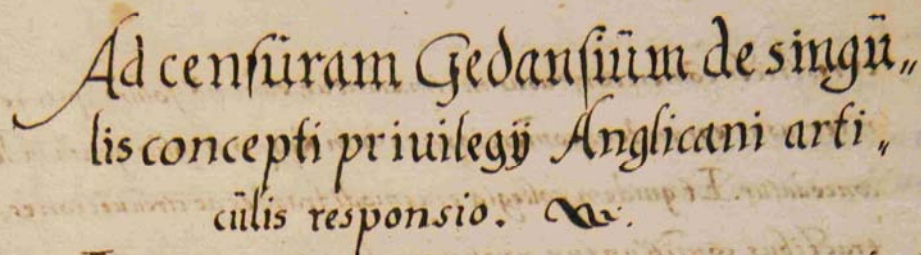 Ad censūram Gedansiūm de singū„
lis concepti priuilegÿ Anglicani arti„
cūlis responsio.